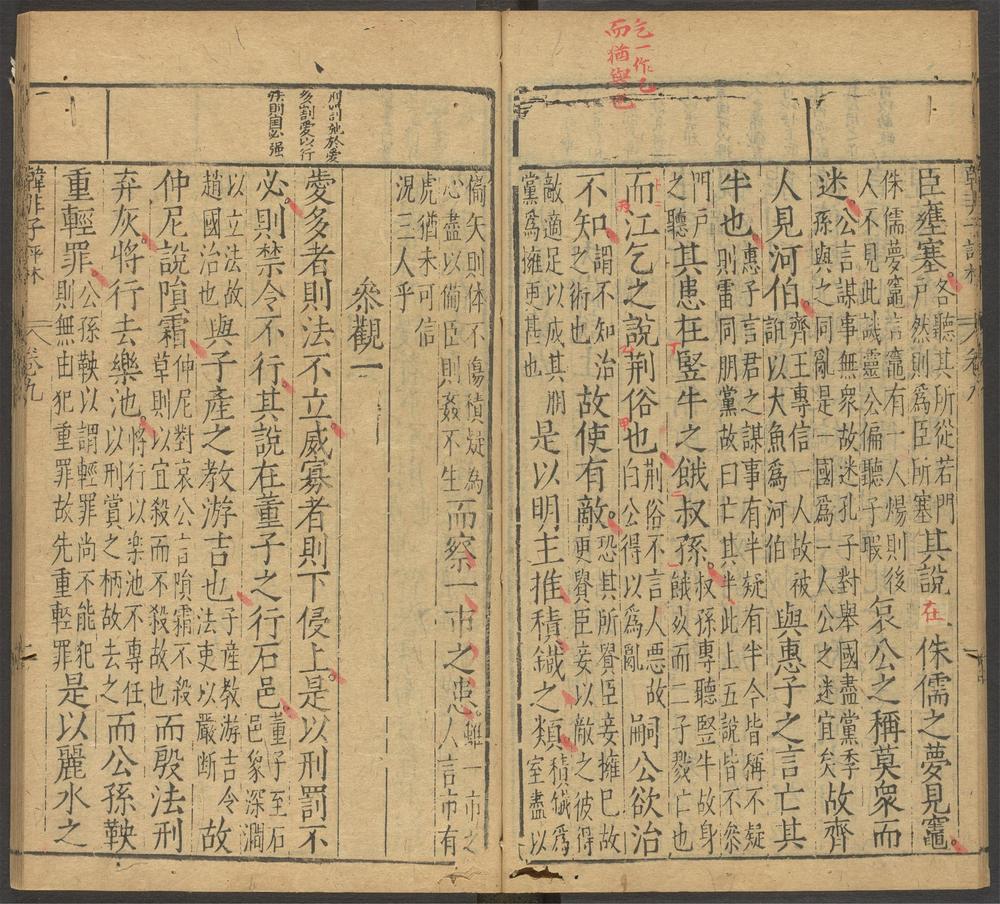 乞一作乞
而猶與也
臣壅塞各聽其所從若門
戶然則爲臣所塞其說在侏儒之夢見竈
侏儒夢竈言竈有一人煬則後
人不見此譏靈公偏聽子瑕哀公之稱莫衆而
迷公言謀事無衆故迷孔子對舉國盡黨季
孫與之同亂是一國爲一人公之迷宜矣故齊
人見河伯齊王專信一人故被
誑以大魚爲河伯與惠子之言亡其
半也惠子言君之謀事有半疑有半今皆稱不疑
則雷同朋黨故曰亡其半此上五說皆不叅
門戶
之聽其患在竪牛之餓叔孫叔孫專聽竪牛故身
餓㱾而二子戮亡也
而江乞之說荆俗也荆俗不言人惡故
白公得以爲亂嗣公欲治
不知謂不知治
之術也故使有敵恐其所貴臣妾擁已故
更貴臣妾以敵之彼得
敵適足以成其朋
黨爲擁更甚也是以明主推積鐵之類積鐵爲
室盡以
備矢則体不傷積疑為
心盡以備臣則姦不生而察一市之患雖一市之
人言市有
虎猶未可信
况三人乎
叅觀一
多割愛以行
愛多者則法不立威寡者則下侵上是以刑罰不
必則禁令不行其說在董子之行石邑董子至石
邑象深澗
以立法故
趙國治也與子產之教游吉也子產教游吉令
法吏以嚴断故
仲尼說隕霜仲尼對哀公言隕霜不殺
草則以宜殺而不殺故也而殷法刑
弃灰將行去樂池將行以樂池不專任
以刑賞之柄故去之而公孫鞅
重輕罪公孫鞅以謂輕罪尚不能犯
則無由犯重罪故先重輕罪是以麗水之
韓非子評林
卷九